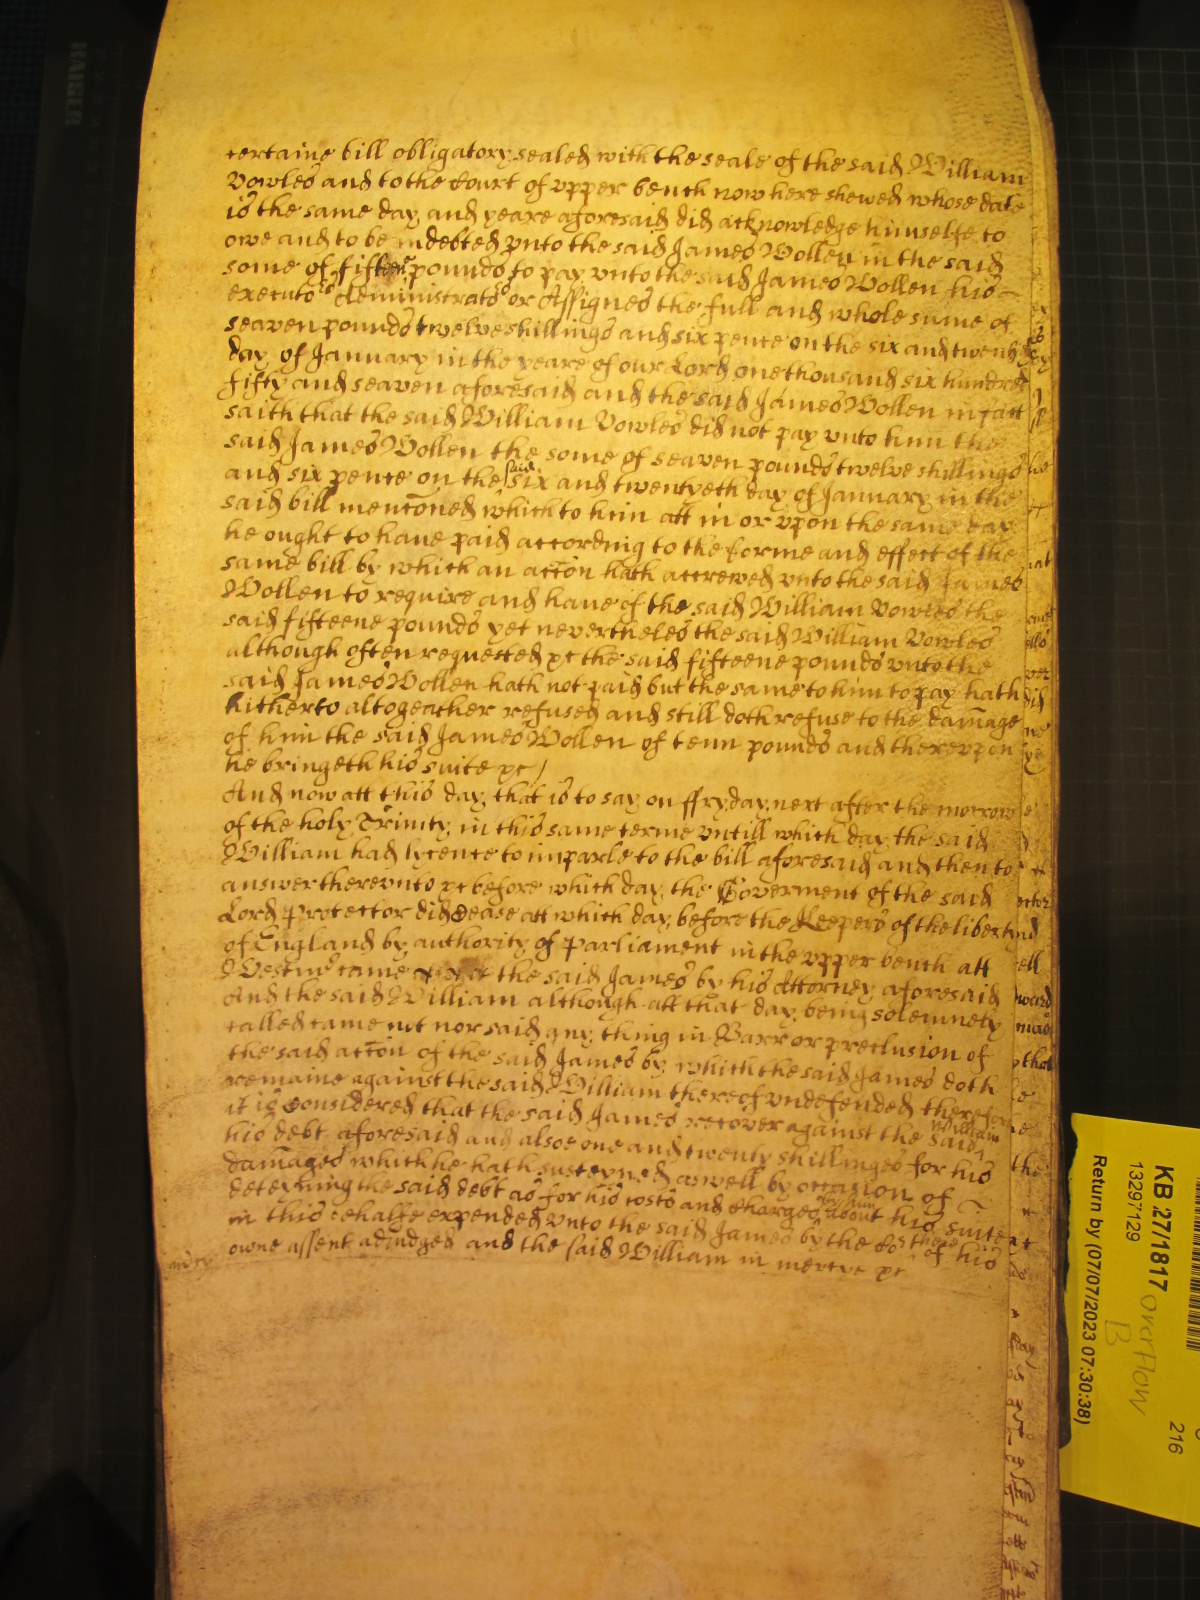 certaine bill obligatory sealed with the seale of the said William
Vowles and to the Court of vpper bench now here shewed whose date
is the same day and yeare aforesaid did acknowledge himselfe to
owe and to be indebted vnto the said James Wollen in the said
some of fifteene pounds to pay vnto the said James Wollen his
executors Administrators or Assignes the full and whole sume of
seaven pounds twelve shillings and six pence on the six and twenty
day of January in the yeare of our Lord one thousand six hundred
fifty and seaven aforesaid and the said James Wollen in fact
saith that the said William Vowles did not pay vnto him the
said James Wollen the some of seaven pounds twelve shillings
and six pence on the said six and twentyeth day of January in the
said bill menconed which to him att in or vpon the same day
he ought to haue paid according to the forme and effect of the
same bill by which an accon hath accrewed vnto the said James
Wollen to require and haue of the said William Vowles the
said fifteene pounds yet nevertheles the said William Vowles
although often requested &c the said fifteene pounds vnto the
said James Wollen hath not paid but the same to him to pay hath
hitherto altogeather refused and still doth refuse to the damage
of him the said James Wollen of tenn pounds and therevpon
he bringeth his suite &c /
And now att this day that is to say on ffryday next after the morrow
of the holy Trinity in this same terme vntill which day the said
William had lycence to imparle to the bill aforesaid and then to
answer therevnto &c before which day the Goverment of the said
Lord Protector did Cease att which day before the Keepers of the libertie
of England by authority of Parliament in the vpper bench att
Westmr came the said James by his Attorney aforesaid
And the said William although att that day being solemnely
called came not nor said any thing in Barr or preclusion of
the said accon of the said James by which the said James doth
remaine against the said William thereof vndefended therefore
it is Considered that the said James recover against the said William
his debt aforesaid and alsoe one and twenty shillinges for his
damages which he hath susteyned aswell by occasion of
deteyning the said debt as for his costs and charges by him about his suite
in this behalfe expended vnto the said James by the Cot there of his
owne assent adiudged and the said William in mercye &c
KB 27/1817 overflow
B
13297129
216
Return by (07/07/2023 07:30:38)